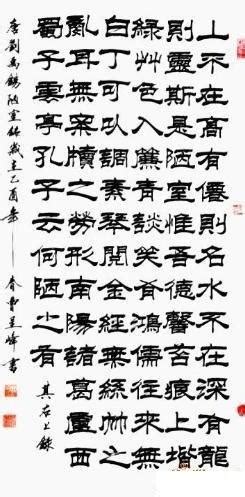 山不在高有僊則名水不在深有龍
則靈斯是陋室惟吾德馨苔痕上堦
綠艸色入簾青談笑有鴻儒往來無
白丁可以調素琴閱金經無絲竹之
亂耳無案牘之勞形南陽諸葛廬西
蜀子雲亭孔子云何陋之有
唐劉禹錫陋室銘歲乙酉春曹峰書